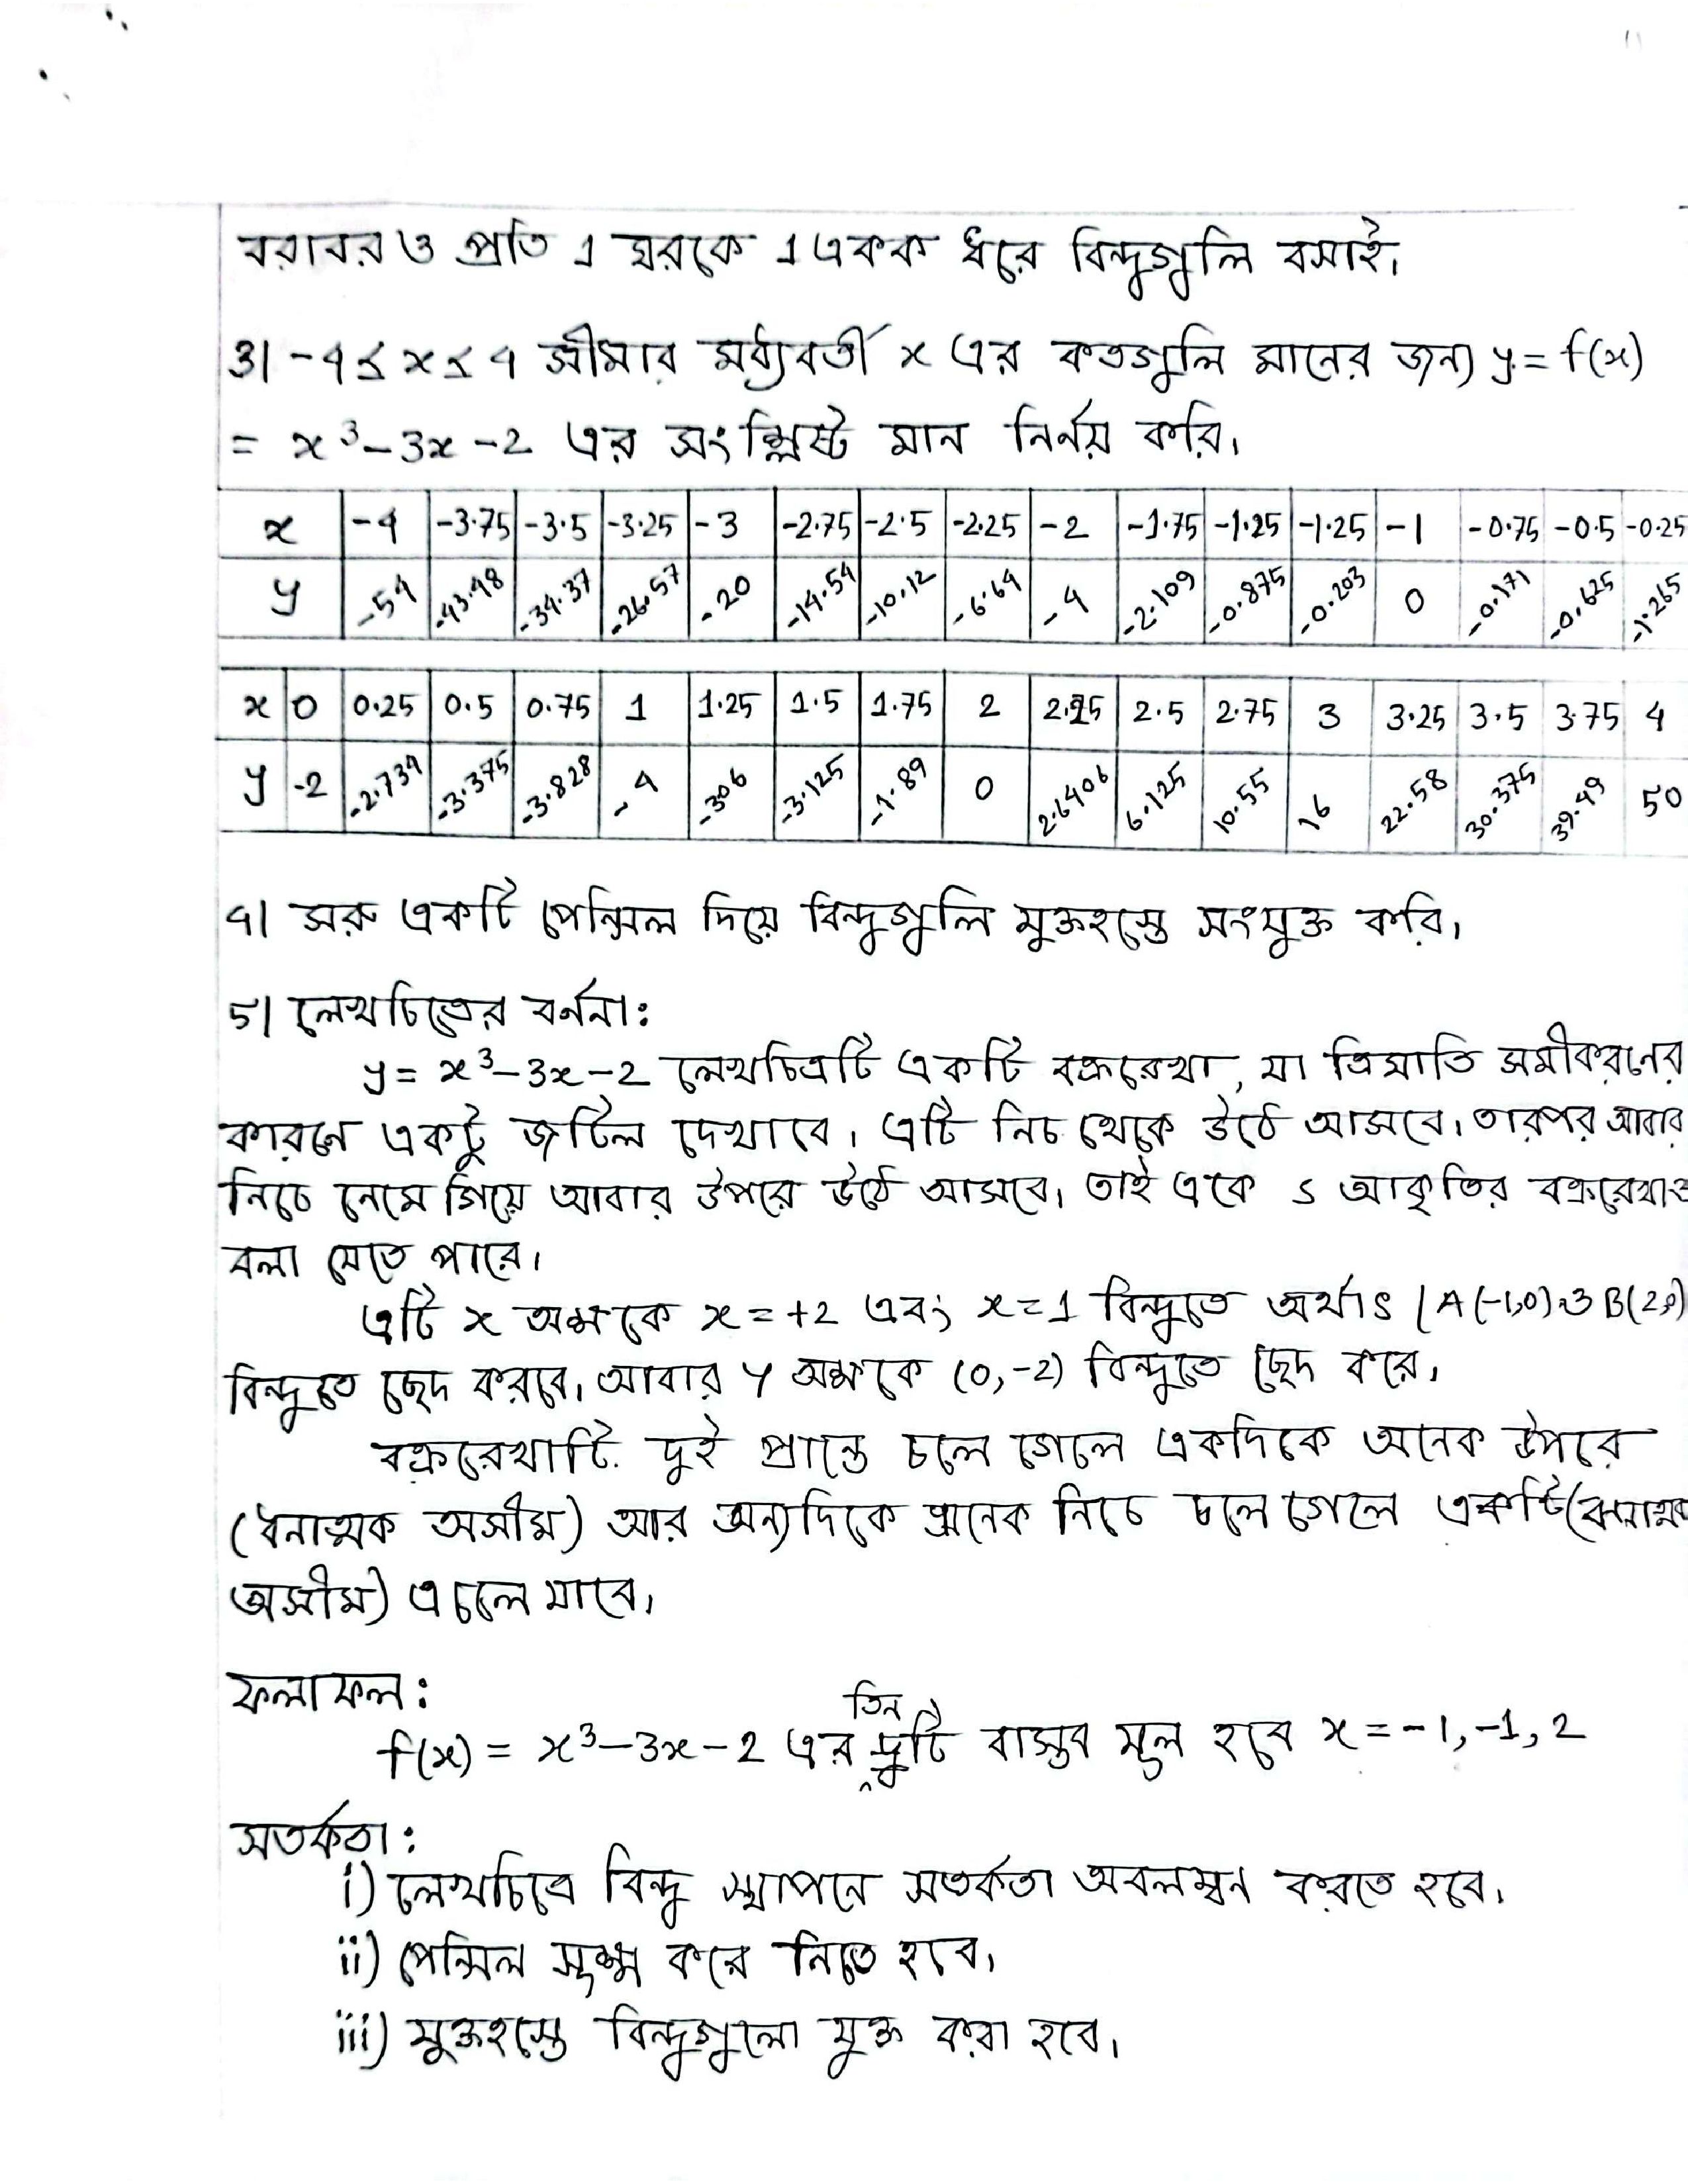 বরাবর ও প্রতি 1 ঘরকে 1 একক ধরে বিন্দুগুলি বসাই।
3। -4 ≤ x ≤ 4 সীমার মধ্যবর্তী x এর কতগুলি মানের জন্য y = f(x)
= x³-3x-2 এর সংশ্লিষ্ট মান নির্নয় করি।
x -4 -3.75 -3.5 -3.25 -3 -2.75 -2.5 -2.25 -2 -1.75 -1.25 -1.25 -1 -0.75 -0.5 -0.25
y -54 -43.48 -34.37 -26.57 -20 -14.54 -10.12 -6.64 -4 -2.109 -0.875 -0.203 0 -0.171 -0.625 -1.265
x 0 0.25 0.5 0.75 1 1.25 1.5 1.75 2 2.25 2.5 2.75 3 3.25 3.5 3.75 4
y -2 -2.734 -3.375 -3.828 -4 -306 -3.125 -1.89 0 2.6406 6.125 10.55 16 22.58 30.375 39.49 50
4। সরু একটি পেন্সিল দিয়ে বিন্দুগুলি মুক্তহস্তে সংযুক্ত করি।
5। লেখচিত্রের বর্ননা:
y = x³-3x-2 লেখচিত্রটি একটি বক্ররেখা, যা ত্রিঘাতি সমীকরনের
কারনে একটু জটিল দেখাবে। এটি নিচ থেকে উঠে আসবে। তারপর আবার
নিচে নেমে গিয়ে আবার উপরে উঠে আসবে। তাই একে S আকৃতির বক্ররেখাও
বলা যেতে পারে।
এটি x অক্ষকে x = +2 এবং x = 1 বিন্দুতে অর্থাৎ A(-1,0) ও B(2,0)
বিন্দুতে ছেদ করবে। আবার y অক্ষকে (0,-2) বিন্দুতে ছেদ করে।
বক্ররেখাটি দুই প্রান্তে চলে গেলে একদিকে অনেক উপরে
(ধনাত্মক অসীম) আর অন্যদিকে অনেক নিচে চলে গেলে একটি (ঋনাত্মক
অসীম) এ চলে যাবে।
ফলাফল:
f(x) = x³-3x-2 এর তিনটি বাস্তব মূল হবে x = -1, -1, 2
সতর্কতা:
i) লেখচিত্রে বিন্দু স্থাপনে সতর্কতা অবলম্বন করতে হবে।
ii) পেন্সিল সূক্ষ্ম করে নিতে হবে।
iii) মুক্তহস্তে বিন্দুগুলো যুক্ত করা হবে।